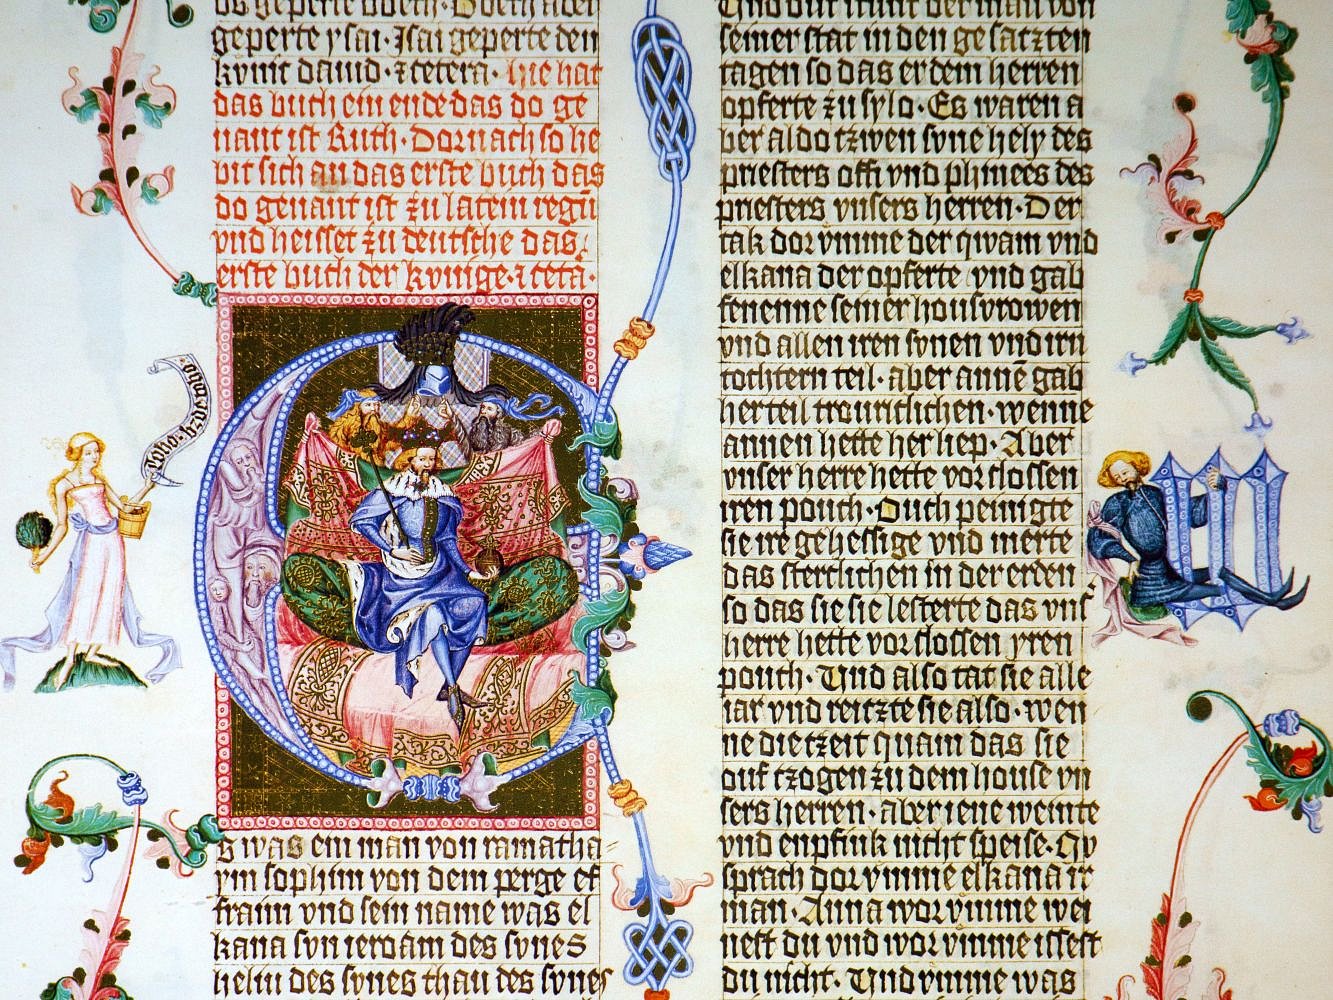 geperte ysai · Isai geperte den
kunic dauid · et cetera · hie hat
das buch ein ende das do ge
nant ist Ruth · Dornach so he
bit sich an das erste buch das
do genant ist zu latein regū
vnd heisset zu deutsche das
erste buch der kunige · et cetā ·
s was ein man von ramatha
ym sophim von dem perge ef
fraim vnd sein name was el
kana sun ieroam des sunes
heliu des sunes thau des sunes
Vnd out mint der man von
seiner stat in den gesatzten
tagen so das er dem herren
opferte zu sylo · Es waren a
ber aldo tzwen sune hely des
priesters offi vnd phinees des
priesters vnsers herren · Der
tak dor vmme der qwam vnd
elkana der opferte vnd gab
fenenne seiner housvrowen
vnd allen iren sunen vnd irn
tochtern teil · aber annē gab
her teil trouriclichen · wenne
annen hette her liep · Aber
vnser herre hette vorslossen
iren pouch · Ouch peinigte
sie ire gehessige vnd merte
das stertlichen in der erden
so das sie sie lesterte das vns
herre hette vorslossen yren
pouch · Vnd also tat sie alle
iar vnd reitzte sie also · wen
ne die tzeit quam das sie
ouf tzogen zu dem house vn
sers herren · aber iene weinte
vnd enpfink nicht speise · Ov
sprach dor vmme elkana ir
man · Anna wor vmme wei
nest du vnd wor vmme issest
du nicht · Vnd vmme was